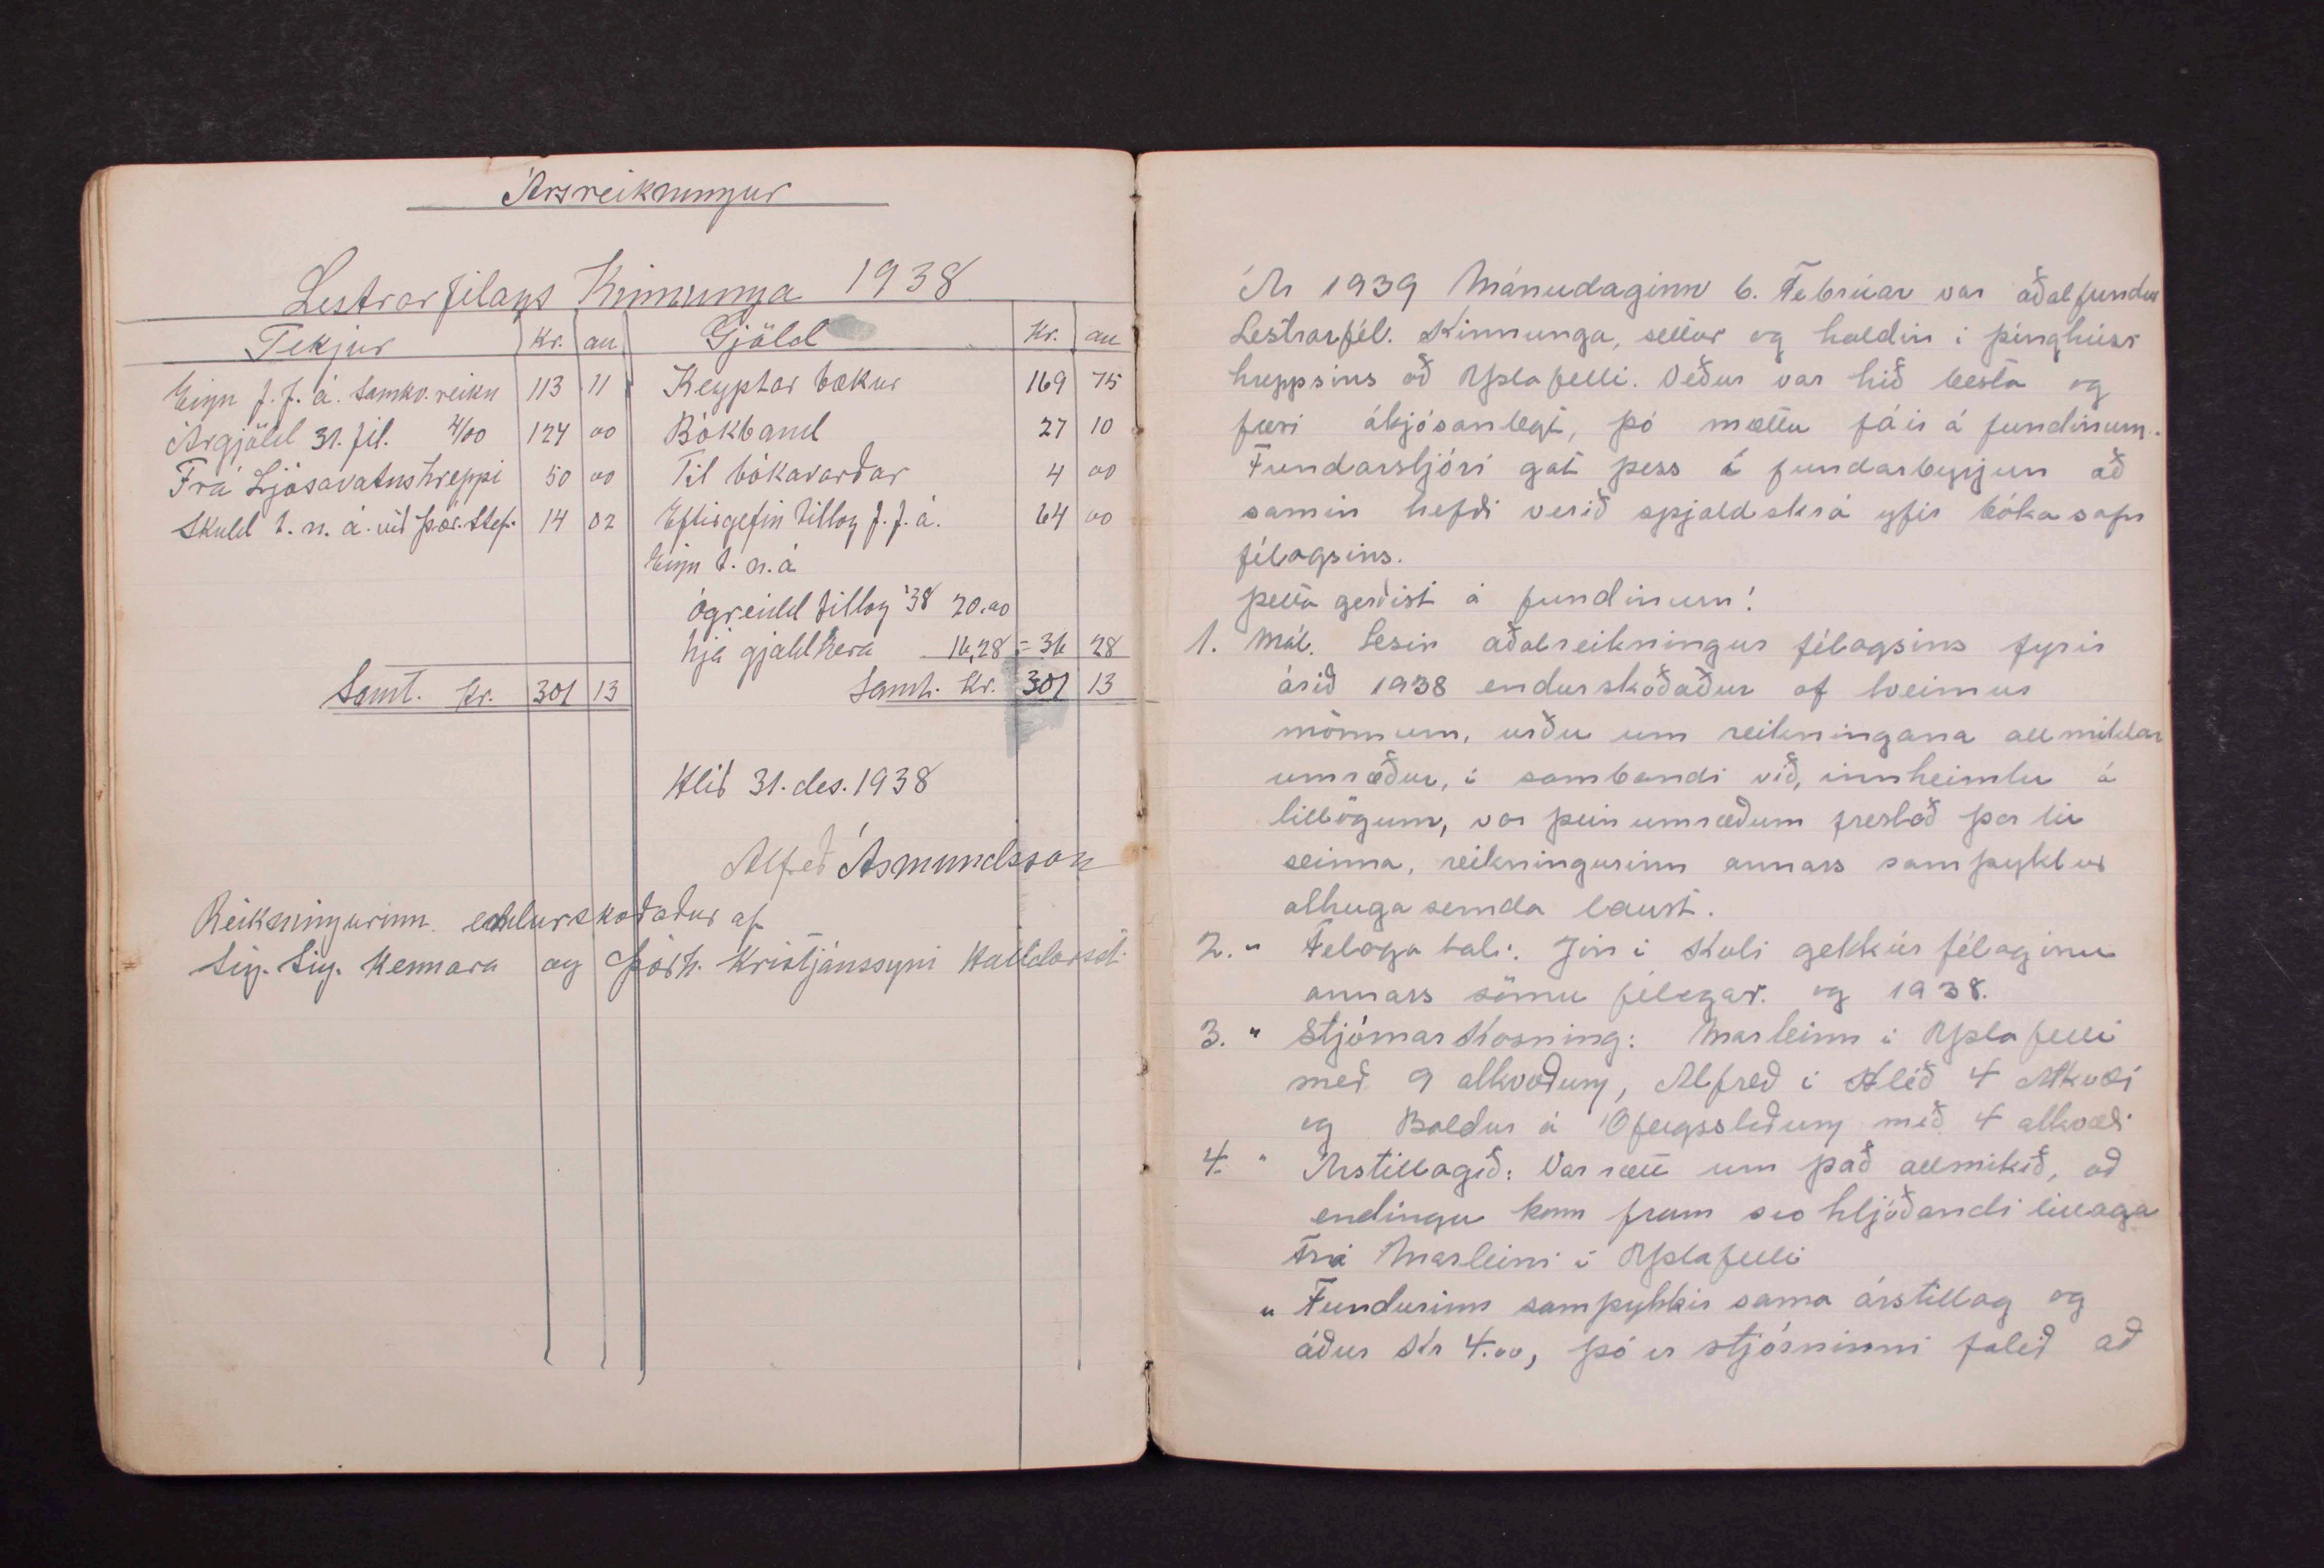 Ársreikningur
Lestrarfélags Kinnunga 1938
Tekjur Kr. au Gjöld Kr. au
Eign f. f. á. Samkv. reikn 113 11 Keyptar bækur 169 75
Árgjöld 31. fél. 4/00 124 00 Bókband 27 10
Frá Ljósavatnshreppi 50 00 Til bókavarðar 4 00
Skuld t. n. á. við Þór. Stef. 14 02 Eftirgefin tillög f. f. á. 64 00
Eign t. n. á
ógreidd tillög '38 20.00
hjá gjaldkera 16,28 = 36 28
Samt. Kr. 301 13 Samt. Kr. 301 13
Hlíð 31. des. 1938
Alfreð Ásmundsson
Reikningurinn endurskoðaður af
Sig. Sig. Kennara og Þórh. Kristjánssyni Halldórsst.
Ár 1939 Mánudaginn 6. Febrúar var aðalfundur
Lestrarfél. Kinnunga, settur og haldin í þinghúsi
hreppsins að Ystafelli. Veður var hið besta og
færi ákjósanlegt, þó mættu fáir á fundinum.
Fundarstjóri gat þess í fundarbyrjun að
samin hefði verið spjaldskrá yfir bókasafn
félagsins.
Þetta gerðist á fundinum!
1. Mál. Lesin aðalreikningur félagsins fyrir
árið 1938 endurskoðaður af tveimur
mönnum, urðu um reikningana allmiklar
umræður, í sambandi við, innheimtu á
tillögum, var þeim umræðum frestað þar til
seinna, reikningurinn annars samþyktur
athugasemda laust.
2. " Félaga tal: Jón í Köli gekk úr félaginu
annars sömu félagar. og 1938.
3. " Stjórnar Kosning: Marteinn í Ystafelli
með 9 atkvæðum, Alfreð í Hlíð 4 Atkvæði
og Baldur á Ófeigsstöðum með 4 atkvæði
4. " Árstillagið: Var rætt um það allmikið, að
endingu kom fram svo hljóðandi tillaga
frá Marteini í Ystafelli
" Fundurinn samþykkir sama árstillag og
áður Kr 4.00, þó er stjórninni falið að